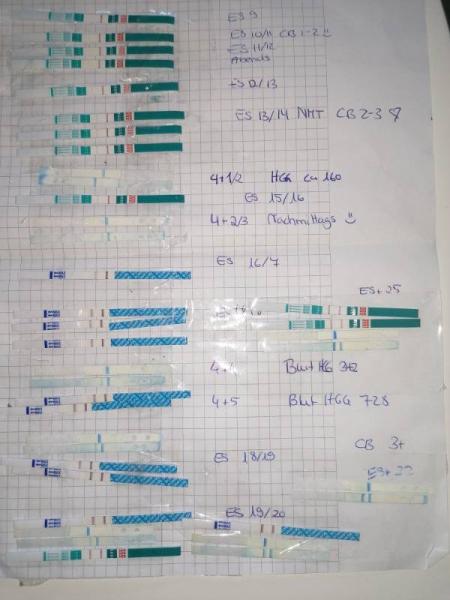 ES 9
ES 10/11 CB 1-2
ES 11/12
Abends
ES 12/13
ES 13/14 NMT CB 2-3
4+1/2 HCG ca 160
ES 15/16
4+2/3 Nachmittags
ES 16/7
ES+25
ES
4+4 Blut HCG
4+5 Blut HCG 728
CB 3+
ES 18/19
ES+22
ES 19/20